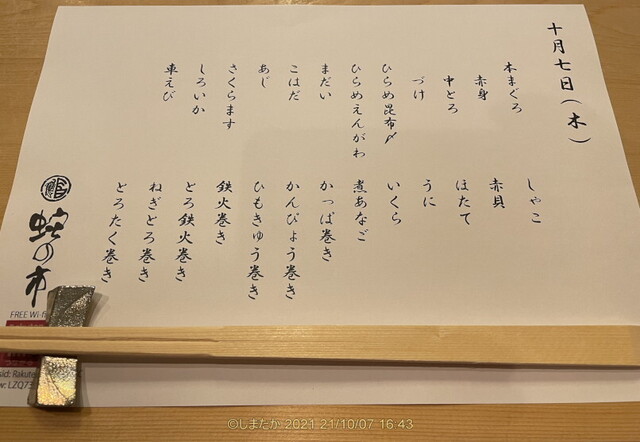 十月七日(木)
本まぐろ
赤身
中とろ
づけ
ひらめ昆布〆
ひらめえんがわ
まだい
こはだ
あじ
さくらます
しろいか
車えび
しゃこ
赤貝
ほたて
うに
いくら
煮あなご
かっぱ巻き
かんぴょう巻き
ひもきゅう巻き
鉄火巻き
とろ鉄火巻き
ねぎとろ巻き
とろたく巻き
蛇の市
FREE Wi-fi
©しまだか 2021 21/10/07 16:43